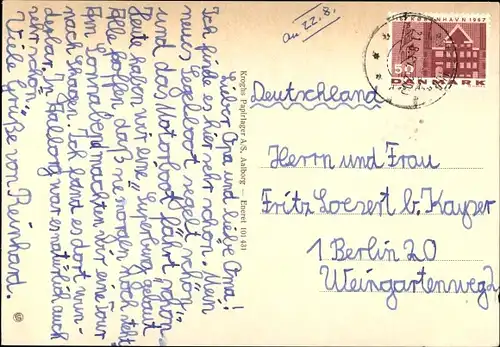 an 22.8.
Lieber Opa und liebe Oma!
Ich finde es hier sehr schön. Mein
neues Segelboot segelt schön
und das Motorboot fährt schön.
Heute haben wir eine „ burg gebaut
Alle hoffen daß sie morgen noch steht
Am Sonnabend machten wir eine Tour
nach Skagen. Ich fand es dort wun-
derbar. In Aalborg war es natürlich auch
sehr schön.
Viele Grüße von Reinhard.
Kroghs Papirlager A/S, Aalborg — Eneret 101 431
KØBENHAVN 1967
50
DANMARK
Deutschland
Herrn und Frau
Fritz Loesert b. Kayser
1 Berlin 20
Weingartenweg 2